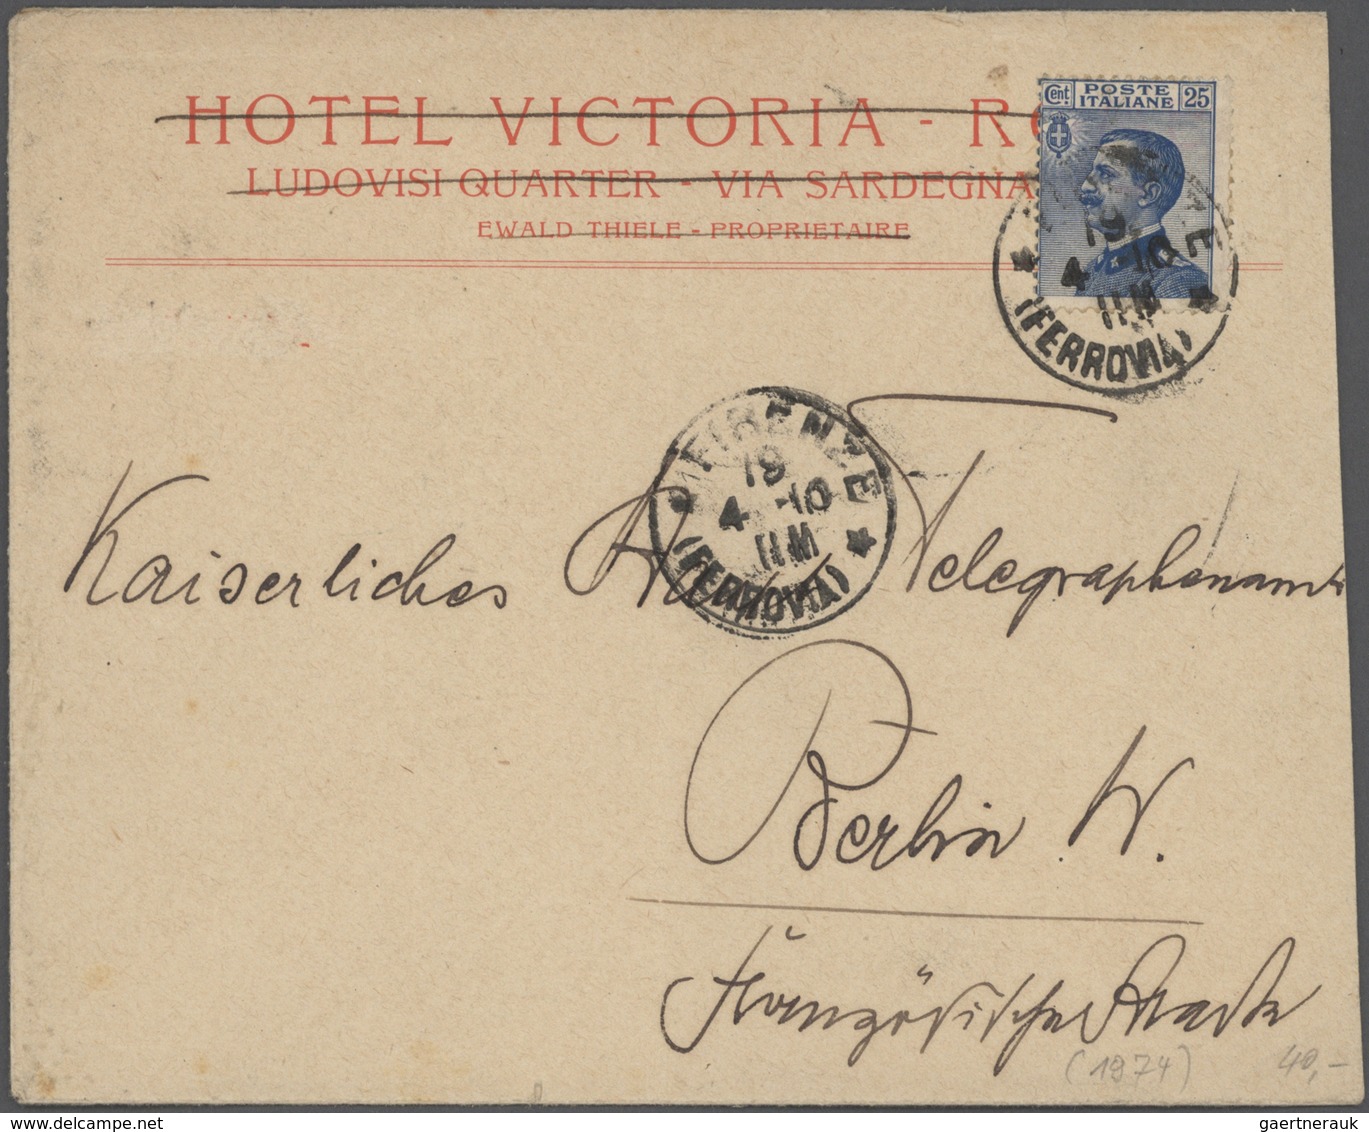 HOTEL VICTORIA - RO
LUDOVISI QUARTER - VIA SARDEGNA
EWALD THIELE - PROPRIETAIRE
Cent POSTE ITALIANE 25
19
4 -10
11M
(FERROVIA)
FIRENZE
19
4 -10
11M
(FERROVIA)
Kaiserliches Telegraphenamt
Berlin W.
Französische Straße
(1974) 40,-
gaertnerauk @ delcampe.net